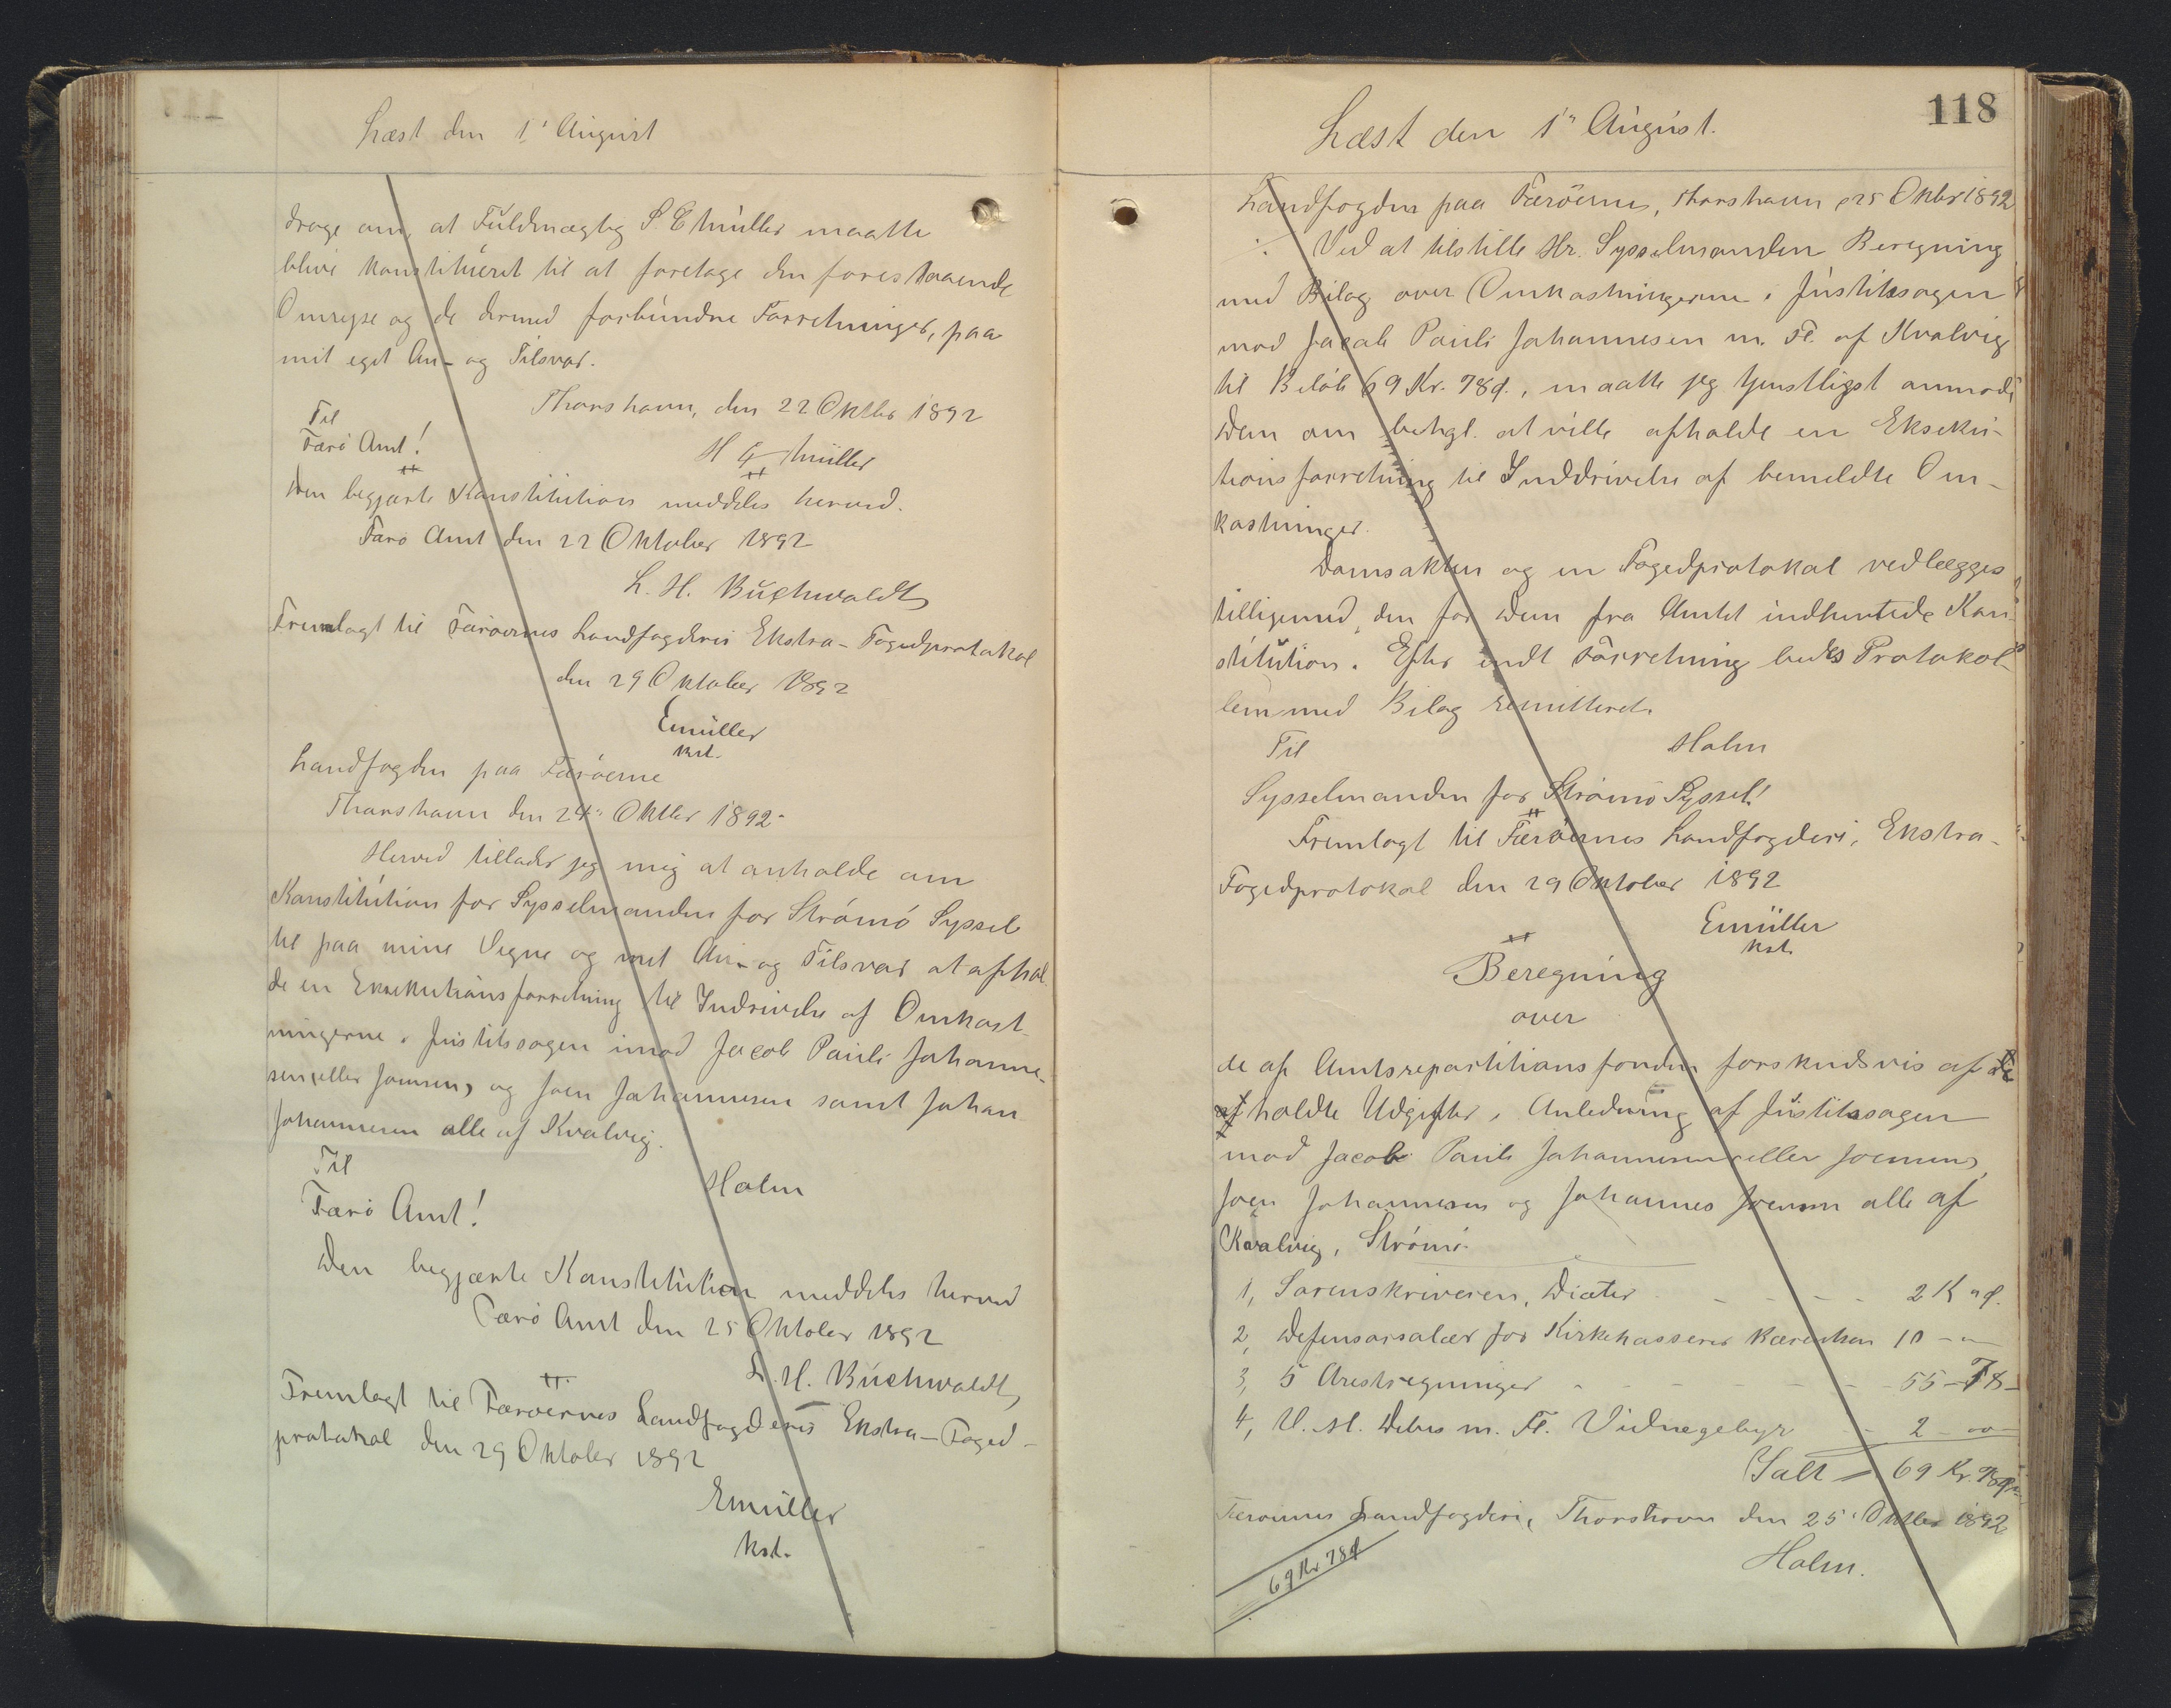 Læst den 1' August
drage om, at Fuldmægtig S E Müller maatte
blive konstitueret til at foretage den forestaaende
Omrejse og de dermed forbundne Forretninger, paa
mit eget An- og Tilsvar.
Thorshavn, den 22 Oktbr 1892
Til
Færö Amt!
H G Müller
Den begjærte Konstitution meddeles herved.
Færö Amt den 22 Oktober 1892
L. H. Buchwaldt
Fremlagt til Færöernes Landfogderis Ekstra-Fogedprotokol
den 29 Oktober 1892
EMüller
kst.
Landfogden paa Færöerne
Thorshavn den 24' Oktbr 1892.
Herved tillader jeg mig at anholde om
Konstitution for Sysselmanden for Strömö Syssel
til paa mine Vegne og mit An- og Tilsvar at afhol
de en Eksekutionsforretning til Inddrivelse af Omkost-
ningerne i Justitssagen imod Jacob Pauli Johanne-
sen (eller Joensen) og Joen Johannesen samt Johan
Johannesen alle af Kvalvig.
Til
Færö Amt!
Holm
Den begjærte Konstitution meddeles herved
Færö Amt den 25 Oktober 1892
L. H. Buchwaldt
Fremlagt til Færöernes Landfogderis Ekstra-Foged-
protokol den 29 Oktober 1892
EMüller
kst.
118
Læst den 1" August.
Landfogden paa Færöerne, Thorshavn d 25 Oktbr 1892
Ved at tilstille Hr. Sysselmanden Beregning
med Bilag over Omkostningerne i Justitssagen
mod Jacob Pauli Johannesen m. Fl. af Kvalvig
til Belöb 69 Kr. 78 ø., maatte jeg tjenstligst anmode
Dem om behgl. at ville afholde en Ekseku-
tionsforretning til Inddrivelse af bemeldte Om-
kostninger.
Domsakten og en Fogedprotokol vedlægges
tilligemed den for Dem fra Amtet indhentede Kon-
stitution. Efter endt Forretning bedes Protokol-
len med Bilag remitteret.
Til
Holm
Sysselmanden for Strömö Syssel!
Fremlagt til Færöernes Landfogderi, Ekstra-
Fogedprotokol den 29 Oktober 1892
EMüller
kst.
Beregning
over
de af Amtsrepartitionsfonden forskudsvis af
holdte Udgifter i Anledning af Justitssagen
mod Jacob Pauli Johannesen (eller Joensen),
Joen Johannesen og Johannes Joensen alle af
Kvalvig, Strömö.
1, Sorenskriveren, Diæter - - - - 2 K " ø.
2, Defensorsalær for Kirkekasserer Bærentsen 10 - "
3, 5 Arestregninger - - - - - 55 - 78 -
4, U. H. Debes m. Fl. Vidnegebyr - 2 - 00
Ialt = 69 Kr. 78 ø
Færöernes Landfogderi, Thorshavn den 25' Oktbr 1892
Holm.
69 Kr 78 ø